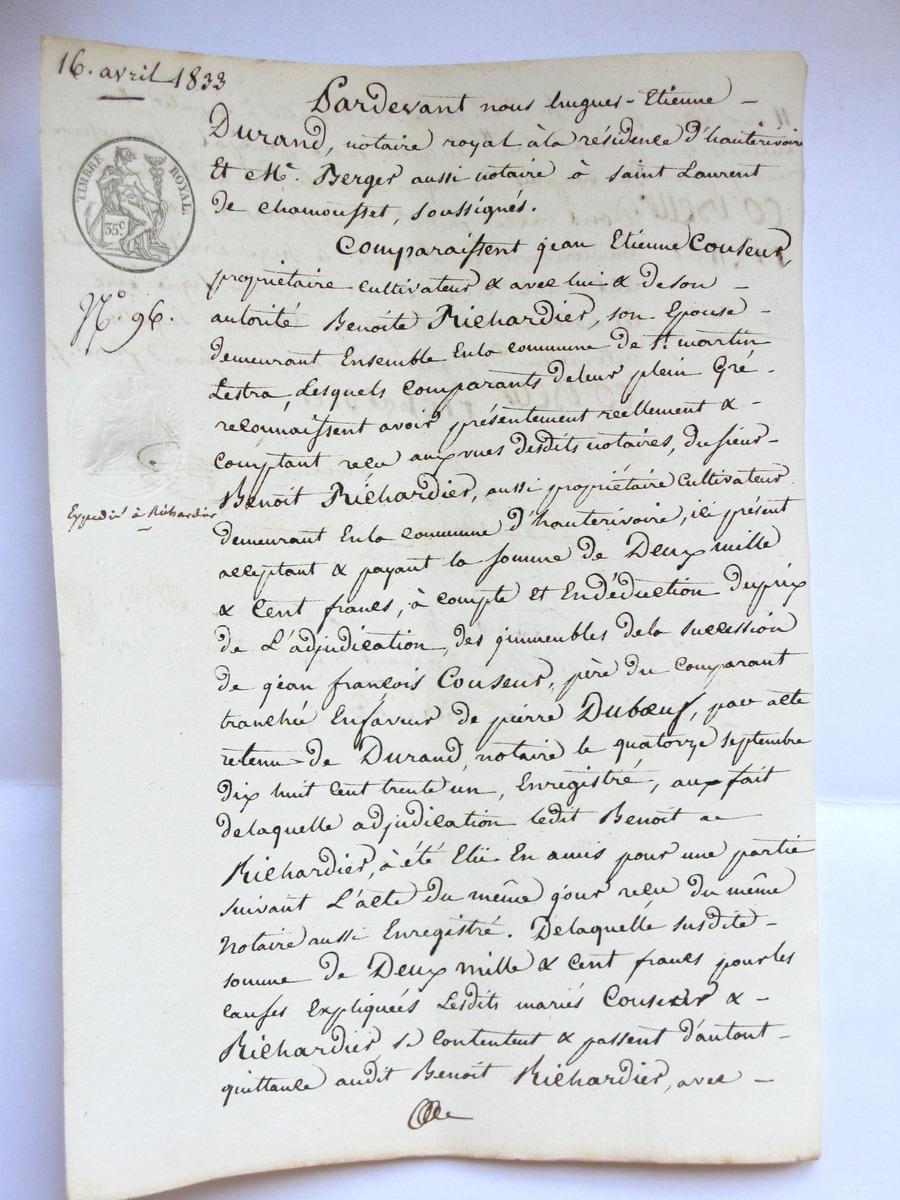 16. avril 1833
Pardevant nous hugues-Etienne -
Durand, notaire royal à la résidence d'hauterivoire
Et Me. Berger aussi notaire à saint Laurent
de chamousset, soussignés.
TIMBRE ROYAL.
35c
Comparaissent jean Etienne Couseur,
propriétaire cultivateur & avec lui & de son -
N° 96.
autorité Benoite Richardier, son Epouse -
demeurant Ensemble Enla commune de St martin
Lestra, Lesquels comparants deleur plein Gré -
reconnaissent avoir présentement reellement & -
comptant reçu aux vues desdits notaires, du sieur -
Benoit Richardier, aussi propriétaire Cultivateur
Expedié à Richardier
demeurant Enla commune d'hauterivoire, ici présent
acceptant & payant la somme de Deux mille
& Cent francs, à compte et Endéduction duprix
de L'adjudication, des jmmeubles dela succession
de jean françois Couseur, père du Comparant
tranchée Enfaveur de pierre Dubœuf, par acte
retenu de Durand, notaire le quatorze septembre
dix huit Cent trente un, Enregistré, aux fait
delaquelle adjudication ledit Benoit
Richardier, à été Elu En amis pour une partie
suivant L'acte du même jour reçu du même
Notaire aussi Enregistré. Delaquelle susdite -
somme de Deux mille & Cent francs pour les
causes Expliquées Lesdits mariés Couseur & -
Richardier se Contentent & passent d'autant -
quittance audit Benoit Richardier, avec -